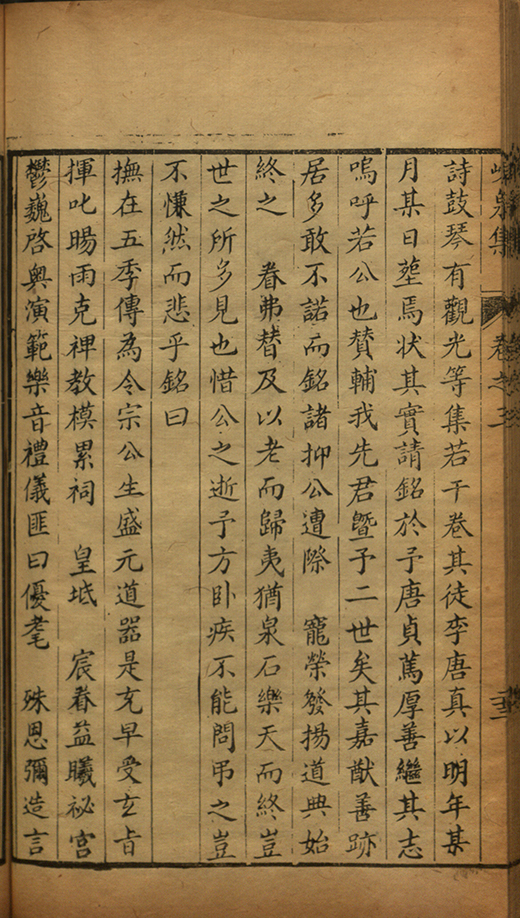 峴泉集 卷之三
詩鼓琴有觀光等集若干卷其徒李唐真以明年某
月某日塟焉状其實請銘於予唐貞篤厚善繼其志
嗚呼若公也賛輔我先君曁予二世矣其嘉猷善跡
居多敢不諾而銘諸抑公遭際 寵榮發揚道典始
終之 眷弗替及以老而歸夷猶泉石樂天而終豈
世之所多見也惜公之逝予方卧疾不能問弔之豈
不慊然而悲乎銘曰
撫在五季傳為令宗公生盛元道器是充早受玄旨
揮叱暘雨克禆教模累祠 皇坻 宸眷益曦祕宫
鬱巍啓奥演範樂音禮儀匪曰優耄 殊恩彌造言